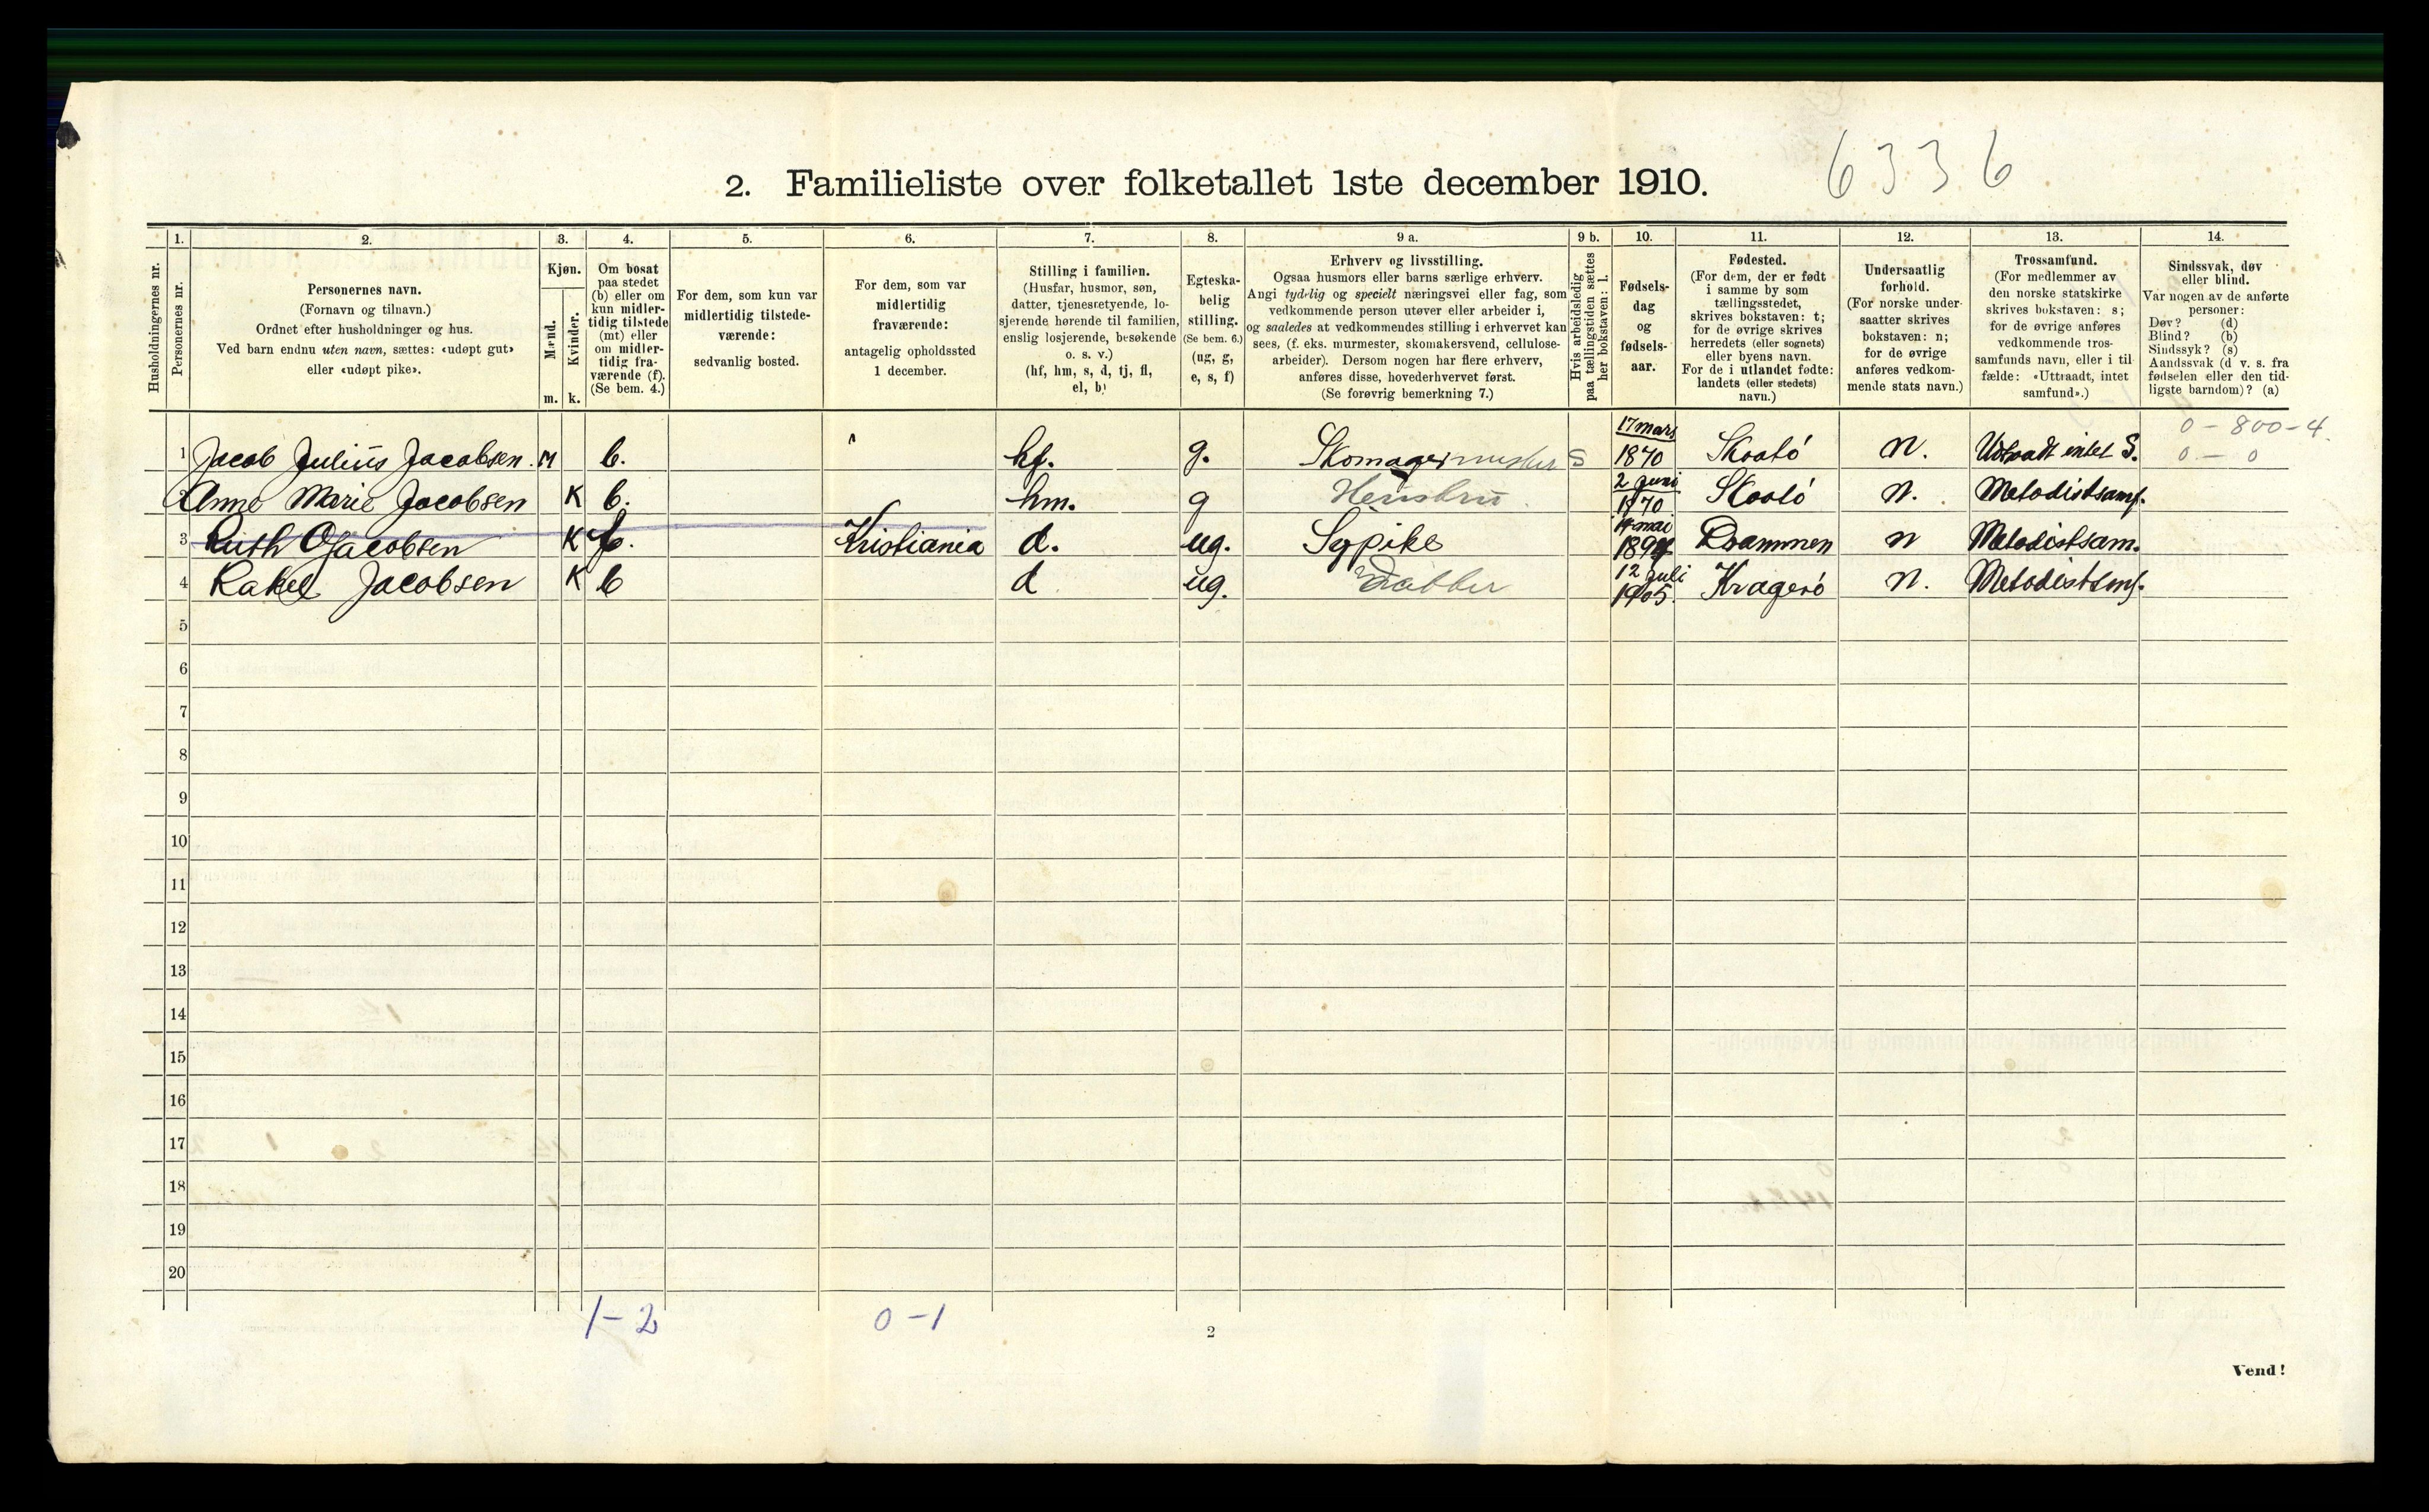 6336
2. Familieliste over folketallet 1ste december 1910.
Husholdningernes nr.
1.
Personernes nr.
2.
Personernes navn.
(Fornavn og tilnavn.)
Ordnet efter husholdninger og hus.
Ved barn endnu uten navn, sættes: «udøpt gut»
eller «udøpt pike».
3.
Kjøn.
Mænd.
Kvinder.
m. k.
4.
Om bosat
paa stedet
(b) eller om
kun midler-
tidig tilstede
(mt) eller
om midler-
tidig fra-
værende (f).
(Se bem. 4.)
5.
For dem, som kun var
midlertidig tilstede-
værende:
sedvanlig bosted.
6.
For dem, som var
midlertidig
fraværende:
antagelig opholdssted
1 december.
7.
Stilling i familien.
(Husfar, husmor, søn,
datter, tjenestetyende, lo-
sjerende hørende til familien,
enslig losjerende, besøkende
o. s. v.)
(hf, hm, s, d, tj, fl,
el, b)
8.
Egteska-
belig
stilling.
(Se bem. 6.)
(ug, g,
e, s, f)
9 a.
Erhverv og livsstilling.
Ogsaa husmors eller barns særlige erhverv.
Angi tydelig og specielt næringsvei eller fag, som
vedkommende person utøver eller arbeider i,
og saaledes at vedkommendes stilling i erhvervet kan
sees, (f. eks. murmester, skomakersvend, cellulose-
arbeider). Dersom nogen har flere erhverv,
anføres disse, hovederhvervet først.
(Se forøvrig bemerkning 7.)
9 b.
Hvis arbeidsledig
paa tællingstiden sættes
her bokstaven: l.
10.
Fødsels-
dag
og
fødsels-
aar.
11.
Fødested.
(For dem, der er født
i samme by som
tællingsstedet,
skrives bokstaven: t;
for de øvrige skrives
herredets (eller sognets)
eller byens navn.
For de i utlandet fødte:
landets (eller stedets)
navn.)
12.
Undersaatlig
forhold.
(For norske under-
saatter skrives
bokstaven: n;
for de øvrige
anføres vedkom-
mende stats navn.)
13.
Trossamfund.
(For medlemmer av
den norske statskirke
skrives bokstaven: s;
for de øvrige anføres
vedkommende tros-
samfunds navn, eller i til
fælde: «Uttraadt, intet
samfund».)
14.
Sindssvak, døv
eller blind.
Var nogen av de anførte
personer:
Døv? (d)
Blind? (b)
Sindssyk? (s)
Aandssvak (d v. s. fra
fødselen eller den tid-
ligste barndom)? (a)
0 - 800 - 4.
1 Jacob Julius Jacobsen. M b. hf. g. Skomagermester S 17 mars 1870 Skaatö n. Udtraadt intet S. 0 - 0
2 Anne Marie Jacobsen K b. hm. g Henstru 2 juni 1870 Skaatö n. Metodistsamf.
3 Ruth O Jacobsen K f. Kristiania d. ug. Sypike 14 mai 1894 Drammen n Metodistsam.
4 Rakel Jacobsen K b d ug. 12 juli 1905. Kragerö n. Metodistsamf.
5
6
7
8
9
10
11
12
13
14
15
16
17
18
19
20
1 - 2 0 - 1
2
Vend!